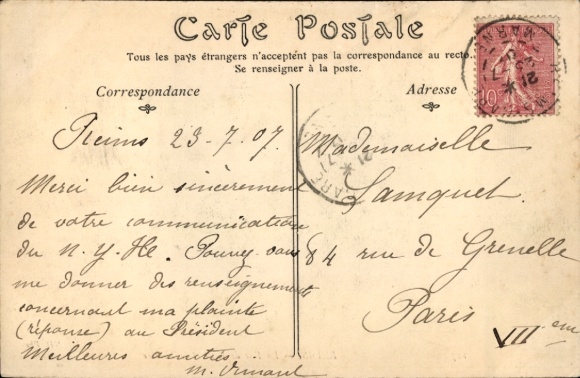 Carte Postale
Tous les pays étrangers n'acceptent pas la correspondance au recto...
Se renseigner à la poste.
Correspondance
Adresse
Reims 23-7.07.
Merci bien sincèrement
de votre communication
du N.Y.He. Pouvez-vous
me donner des renseignements
concernant ma plainte
(réponse) au Président
Meilleures amitiés
M.
Mademoiselle
84 rue de Grenelle
Paris
VII eme
10
MARNE
GARE
21